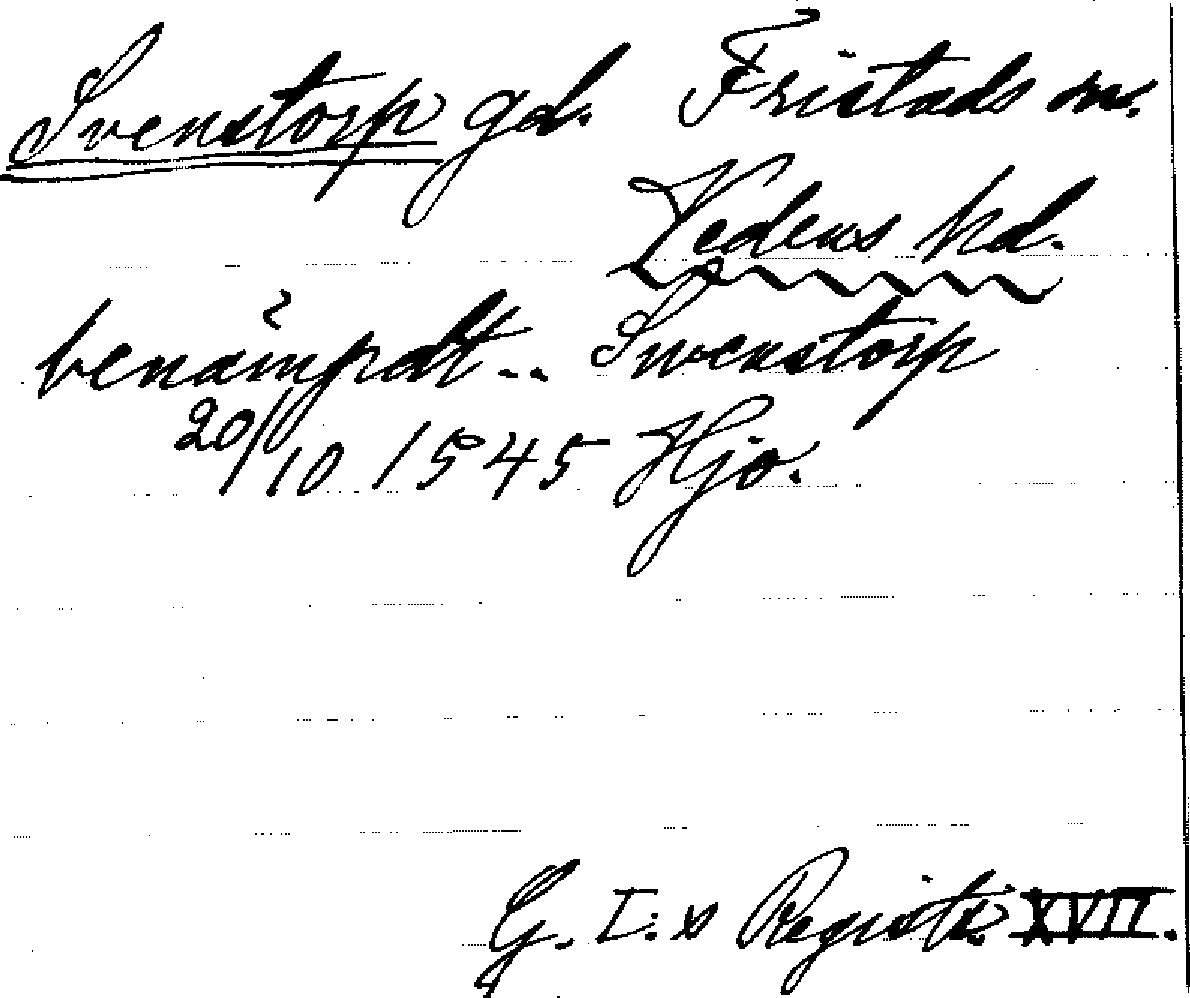 Svenstorp gd. Fristads sn.
Vedens hd.
benämpdt.. Swenstorp
20/10 1545 Hjo.
G. I:s Registr. XVII.